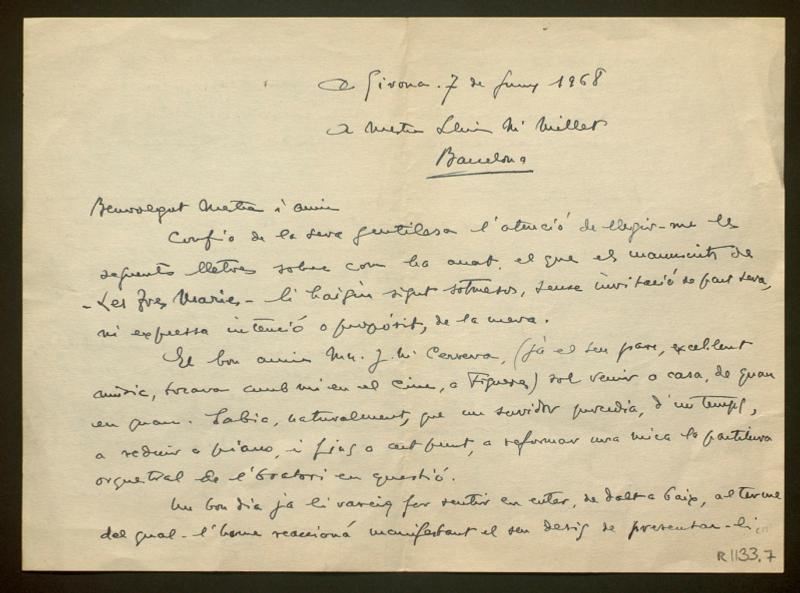 a Girona. 7 de Juny 1968
a Mestre Lluis Mª Millet
Barcelona
Benvolgut Mestre i amic
Confio de la seva gentilesa l'atenció de llegir-me les
seguents lletres sobre com ha anat, el que els manuscrits de
-Les Tres Maries- li hagin sigut sotmesos, sense invitació de part seva,
ni expressa intenció o propòsit, de la meva.
El bon amic Mn. J. Mª Cervera, (ja el seu pare, excellent
músic, tocava amb mi en el cine, a Figueres) sol venir a casa, de quan
en quan. Sabia, naturalment, que un servidor procedia, d'un temps,
a reduir a piano, i fins a cert punt, a reformar una mica la partitura
orquestral de l'Oratori en questió.
Un bon dia ja li vareig fer sentir en enter, de dalt a baix, al terme
del qual - l'home reaccioná manifestant el seu desig de presentar-li,
R 1133.7